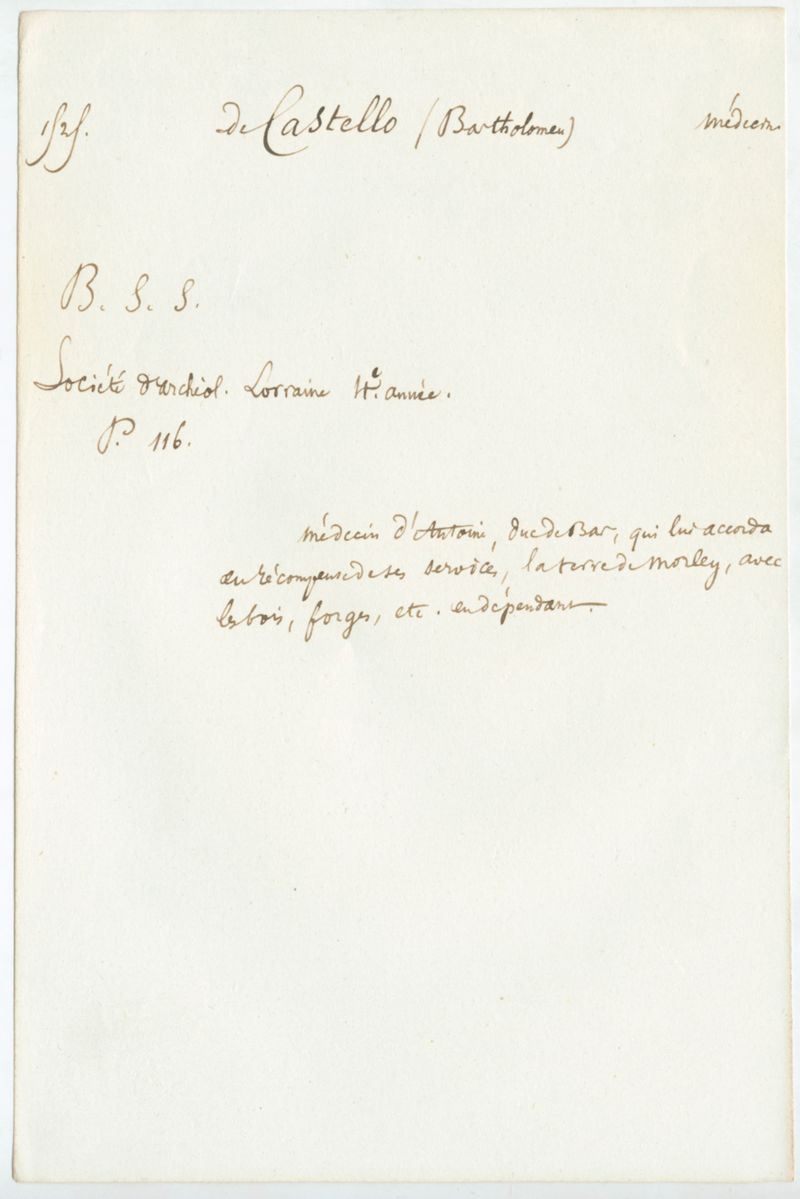 1525. de Castello (Bartholomeu) médecin
B. S. S.
Société d'archéol. Lorraine 4e. année.
P. 116.
médecin d'Antoine, duc de Bar, qui lui accorda
en récompense de ses services, la terre de Morley, avec
les bois, forges, etc. en dépendant.